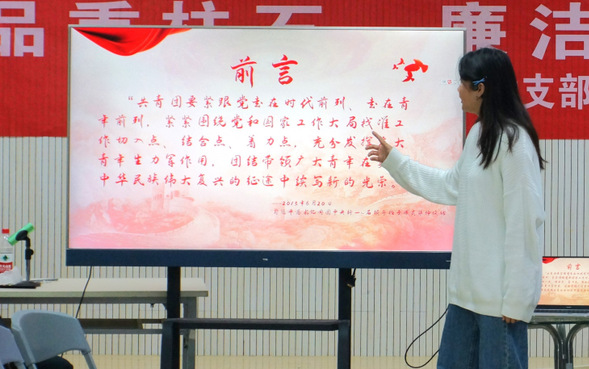 品重柱石 廉洁
支部
前言
“共青团要紧跟党走在时代前列、走在青
年前列，紧紧围绕党和国家工作大局找准工
作切入点、结合点、着力点，充分发挥
大
青年生力军作用，团结带领广大青年在
中华民族伟大复兴的征途中续写新的光荣。
2013年6月20日